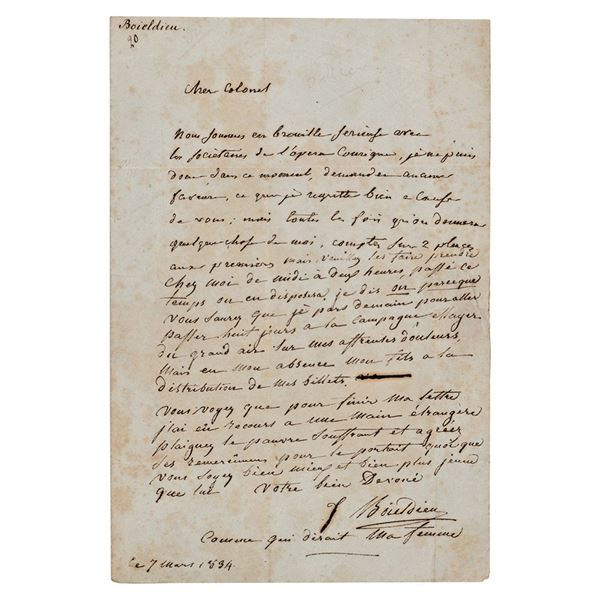 Boieldieu.
90
Cher Colonel
Nous sommes en brouille serieuse avec
les societaires de l'opera Comique, je ne puis
donc dans ce moment, demander aucune
faveur, ce que je regrette bien a cause
de vous; mais toutes les fois qu'on donnera
quelque chose de moi, comptez sur 2 places
aux premieres mais veuillez les faire prendre
chez moi de midi à deux heures, passé ce
temps on en disposera. je dis on parceque
vous saurez que je pars demain pour aller
passer huit jours a la campagne essayer
du grand air sur mes affreuses douleurs,
Mais en mon absence mon fils a la
distribution de mes billets.
Vous voyez que pour finir ma lettre
j'ai eu recours a une main étrangère
plaignez le pauvre souffrant et agréez
ses remerciemens pour le portrait quoique
vous soyez bien mieux et bien plus jeune
que lui Votre bien Devoué
Boieldieu
Comme qui dirait Ma femme
le 7 Mars 1834.